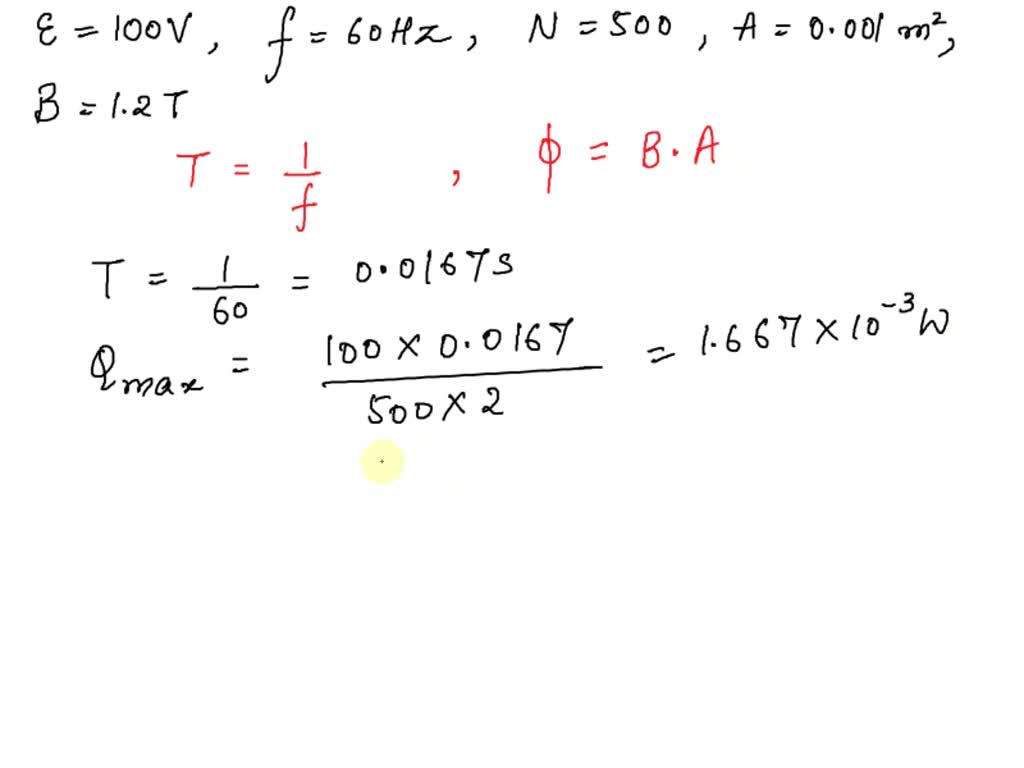 ε = 100V, f = 60Hz, N = 500, A = 0.001 m²,
B = 1.2 T
T = 1/f , ϕ = B·A
T = 1/60 = 0.0167s
Qmax = 100 × 0.0167 / 500 × 2 = 1.667 × 10⁻³ W